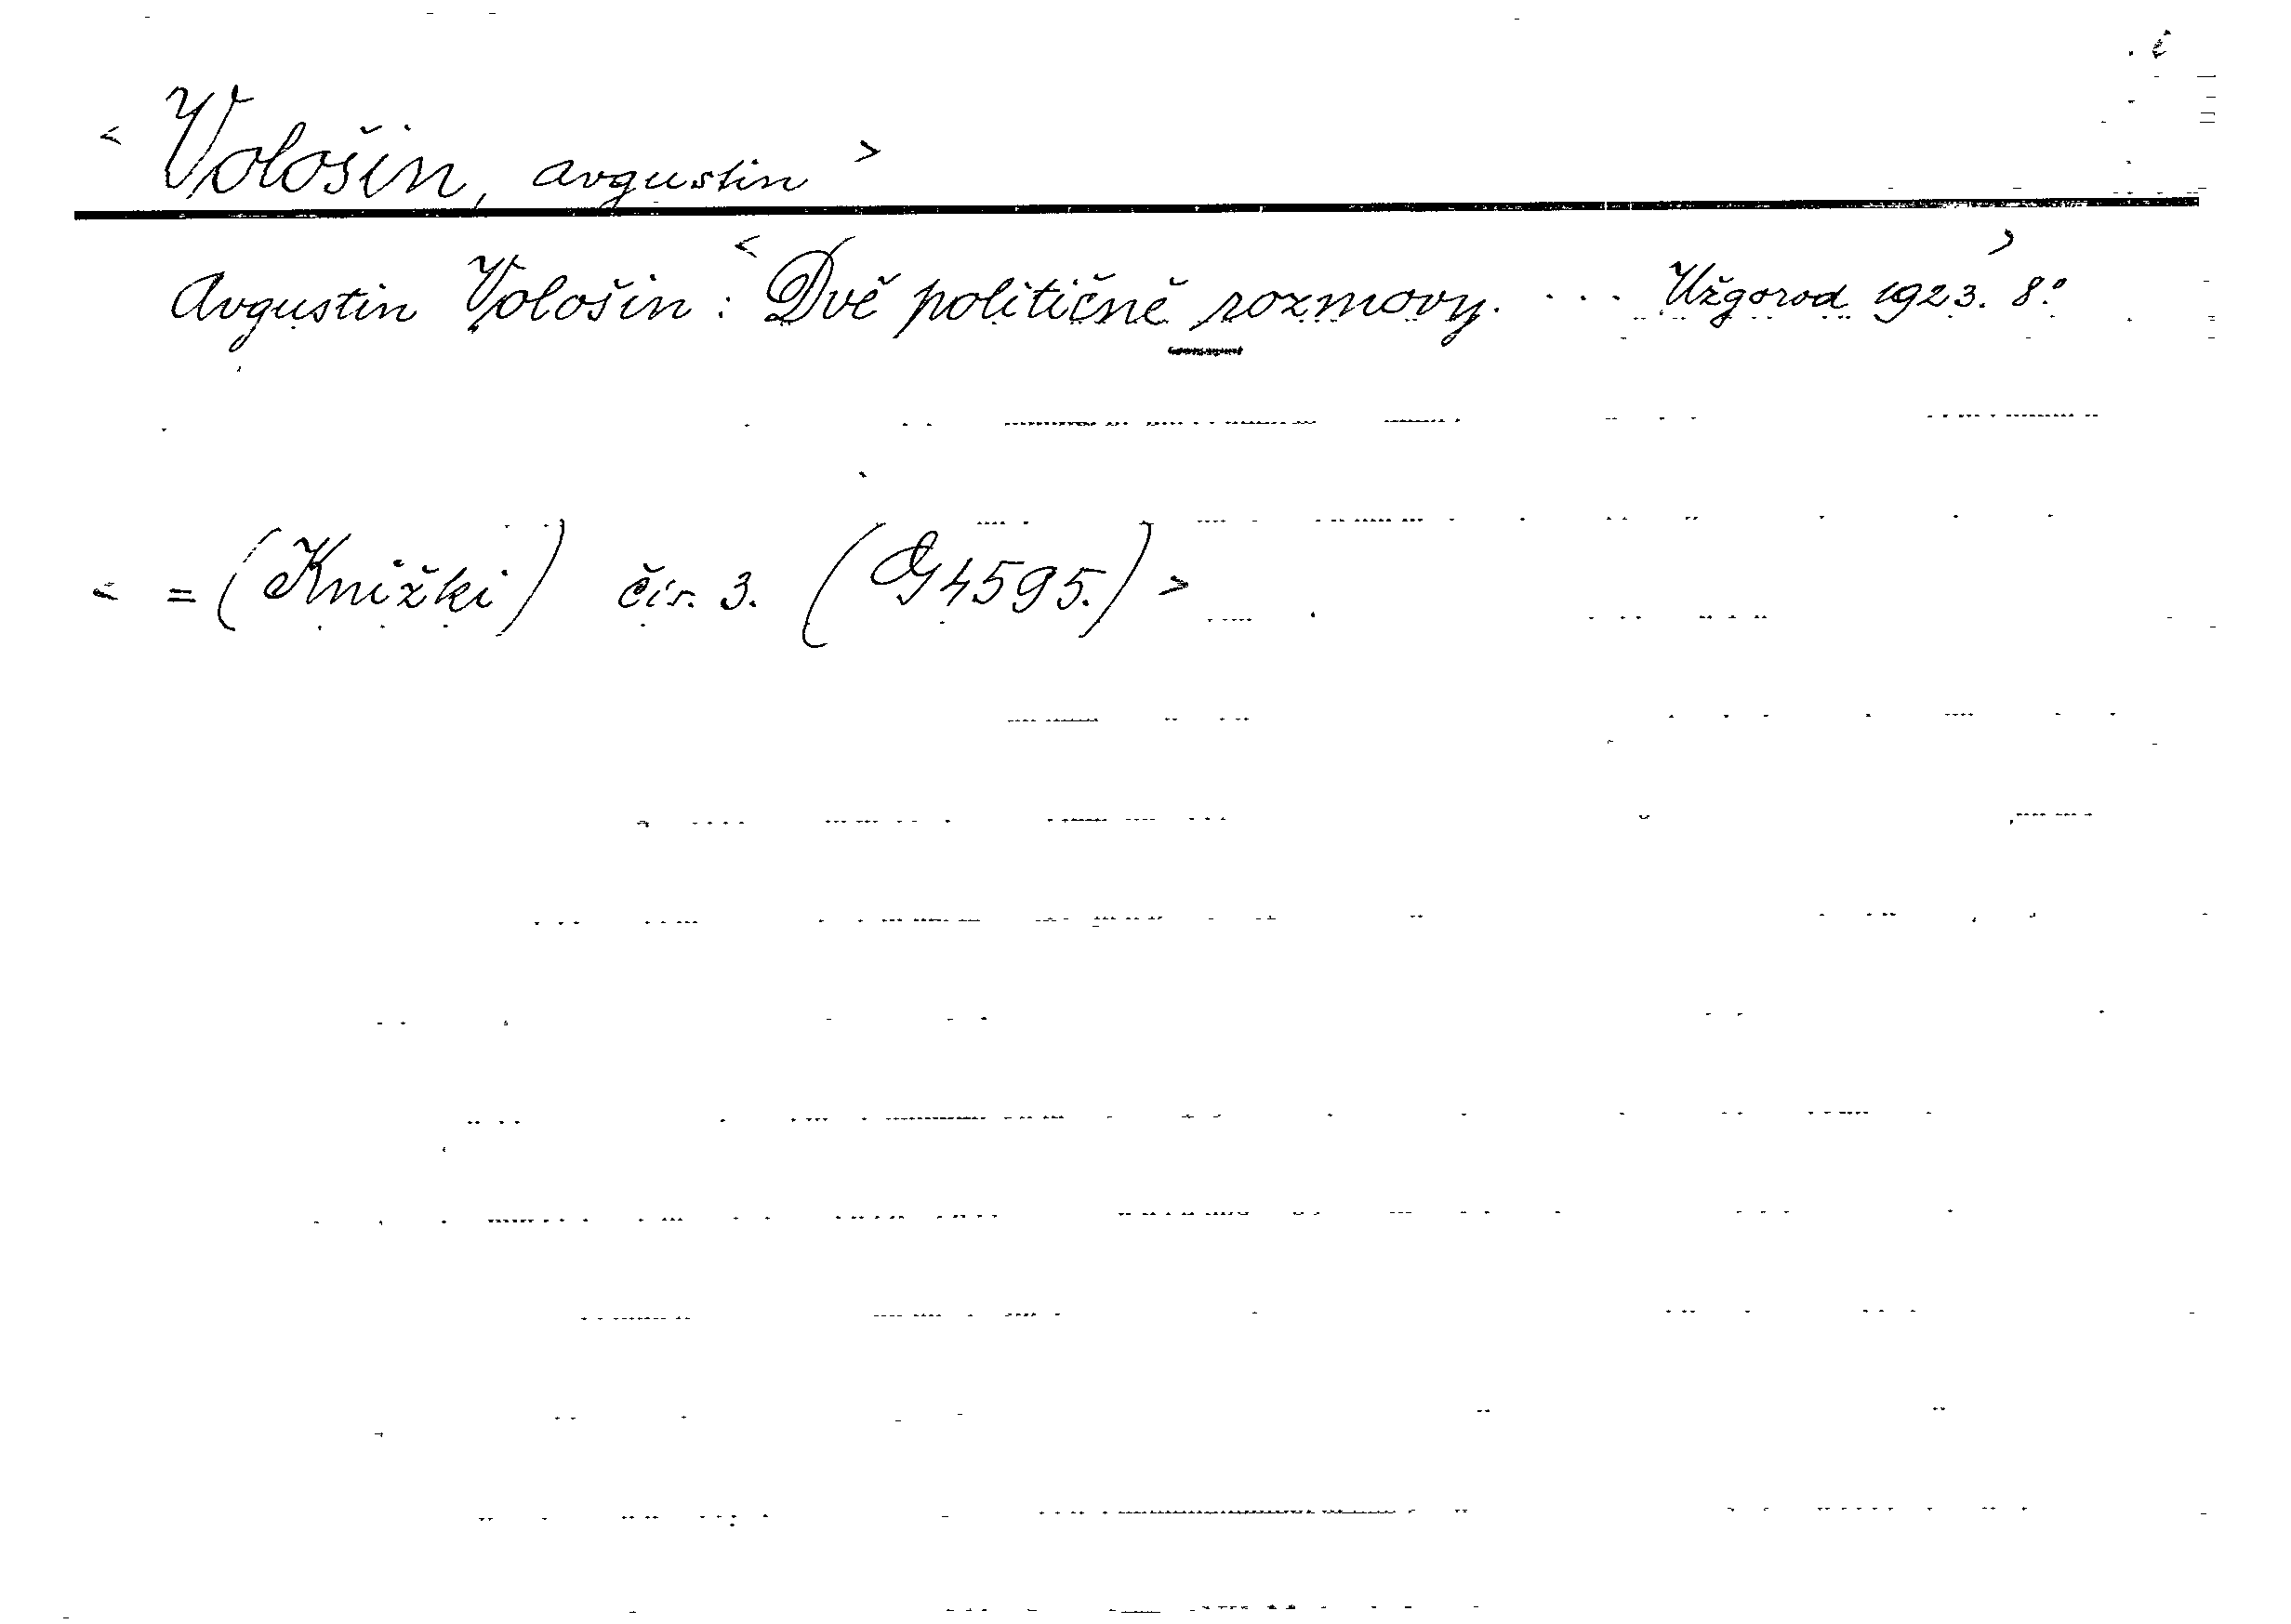 < Vološin, Avgustin >
Avgustin Vološin: < Dvě političně rozmovy. ... Užgorod 1923. 8.° >
< = (Knižki) čis. 3. (G 4595.) >